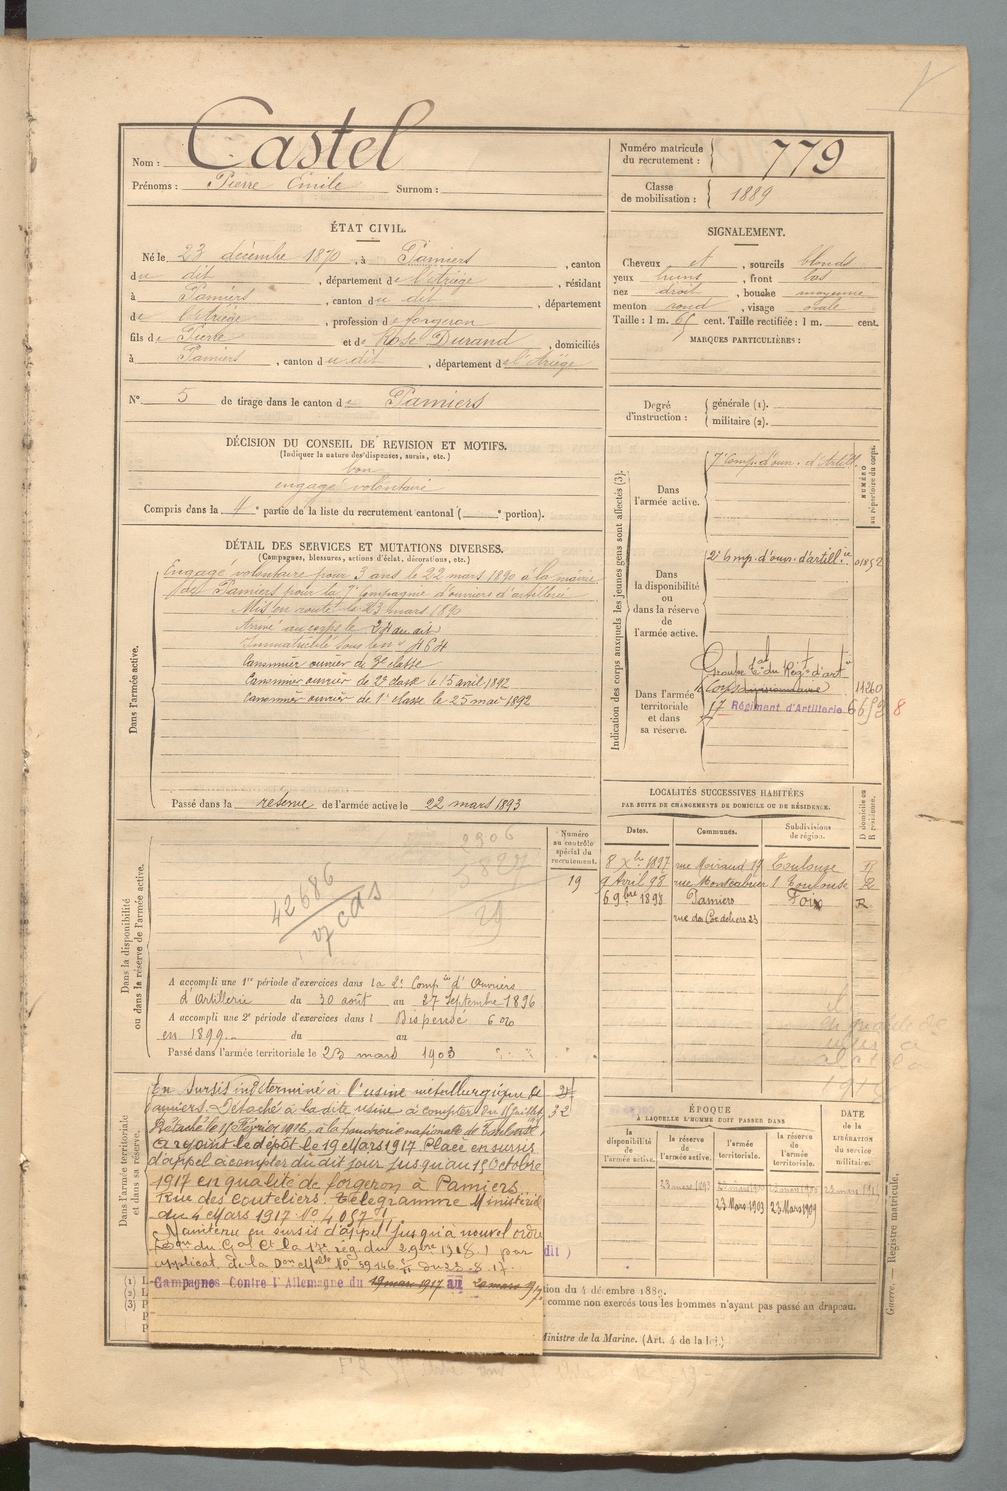 Nom : Castel
Prénoms : Pierre Émile Surnom :
Numéro matricule du recrutement : 779
Classe de mobilisation : 1889
ÉTAT CIVIL.
Né le 23 décembre 1870, à Pamiers, canton
du dit, département de l'Ariège, résidant
à Pamiers, canton du dit, département
de l'Ariège, profession de forgeron
fils de Pierre et de Rose Durand, domiciliés
à Pamiers, canton du dit, département de l'Ariège
N° 5 de tirage dans le canton de Pamiers
SIGNALEMENT.
Cheveux et, sourcils blonds
yeux, front bas
nez droit, bouche moyenne
menton rond, visage ovale
Taille : 1 m. 65 cent. Taille rectifiée : 1 m. cent.
MARQUES PARTICULIÈRES :
Degré d'instruction : générale (1).
militaire (2).
DÉCISION DU CONSEIL DE REVISION ET MOTIFS.
(Indiquer la nature des dispenses, sursis, etc.)
bon
engagé volontaire
Compris dans la 4e partie de la liste du recrutement cantonal ( e portion).
DÉTAIL DES SERVICES ET MUTATIONS DIVERSES.
(Campagnes, blessures, actions d'éclat, décorations, etc.)
Dans l'armée active.
Engagé volontaire pour 3 ans le 22 mars 1890 à la mairie
de Pamiers pour la 7e Compagnie d'ouvriers d'artillerie
Mis en route le 23 mars 1890
Arrivé au corps le 24 du dit
Immatriculé sous le n° 464
Canonnier ouvrier de 3e classe
Canonnier ouvrier de 2e classe le 15 avril 1892
Canonnier ouvrier de 1e classe le 25 mai 1892
Passé dans la réserve de l'armée active le 22 mars 1893
Indication des corps auxquels les jeunes gens sont affectés (3).
NUMÉRO au répertoire du corps.
Dans l'armée active.
7e Comp. d'ouv. d'Artill.
Dans la disponibilité ou dans la réserve de l'armée active.
2e Comp. d'ouv. d'artillie 01852
Dans l'armée territoriale et dans sa réserve.
Groupe Tal du Régt d'arte
11260
17 Régiment d'Artillerie
8
LOCALITÉS SUCCESSIVES HABITÉES
PAR SUITE DE CHANGEMENTS DE DOMICILE OU DE RÉSIDENCE.
Dates. Communes. Subdivisions de région. D domicile ou R résidence.
8 Xbre 1897 rue 17 Toulouse R
9 Avril 98 rue Montcabrier 1 Toulouse R
6 9bre 1898 Pamiers Foix R
rue des Cordeliers 23
Dans la disponibilité ou dans la réserve de l'armée active.
Numéro au contrôle spécial du recrutement.
19
2906
5827
29
42686
A accompli une 1re période d'exercices dans la 2e Compie d'Ouvriers
d'Artillerie du 30 août au 27 Septembre 1896
A accompli une 2e période d'exercices dans l Dispensé 6%
en 1899 du au
Passé dans l'armée territoriale le 23 mars 1903
Dans l'armée territoriale et dans sa réserve.
En sursis indéterminé à l'usine métallurgique de
Pamiers. Détaché à la dite usine à compter du Juillet
32
Détaché le Février 1916, à la poudrerie nationale de Toulouse,
a rejoint le dépôt le 19 Mars 1917 Placé en sursis
d'appel à compter du dit jour jusqu'au 15 Octobre
1917 en qualité de forgeron à Pamiers
Rue des couteliers. Télégramme Ministériel
du 4 Mars 1917 No 4057
Maintenu en sursis d'appel jusqu'à nouvel ordre
du Gal Ct la 17e rég. du 2 9bre 1918 par
applicat. de la Don Mlle No 59146 du 23.8.17.
Campagnes Contre l'Allemagne du 19 mars 1917 au 20 mars 1917
ÉPOQUE
À LAQUELLE L'HOMME DOIT PASSER DANS
la disponibilité de l'armée active. la réserve de l'armée active. l'armée territoriale. la réserve de l'armée territoriale. DATE de la LIBÉRATION du service militaire.
23 mars 1893
23 Mars 1903 23 Mars 1909
tion du 4 décembre 1889.
comme non exercés tous les hommes n'ayant pas passé au drapeau.
Ministre de la Marine. (Art. 4 de la loi.)
Guerre. — Registre matricule.